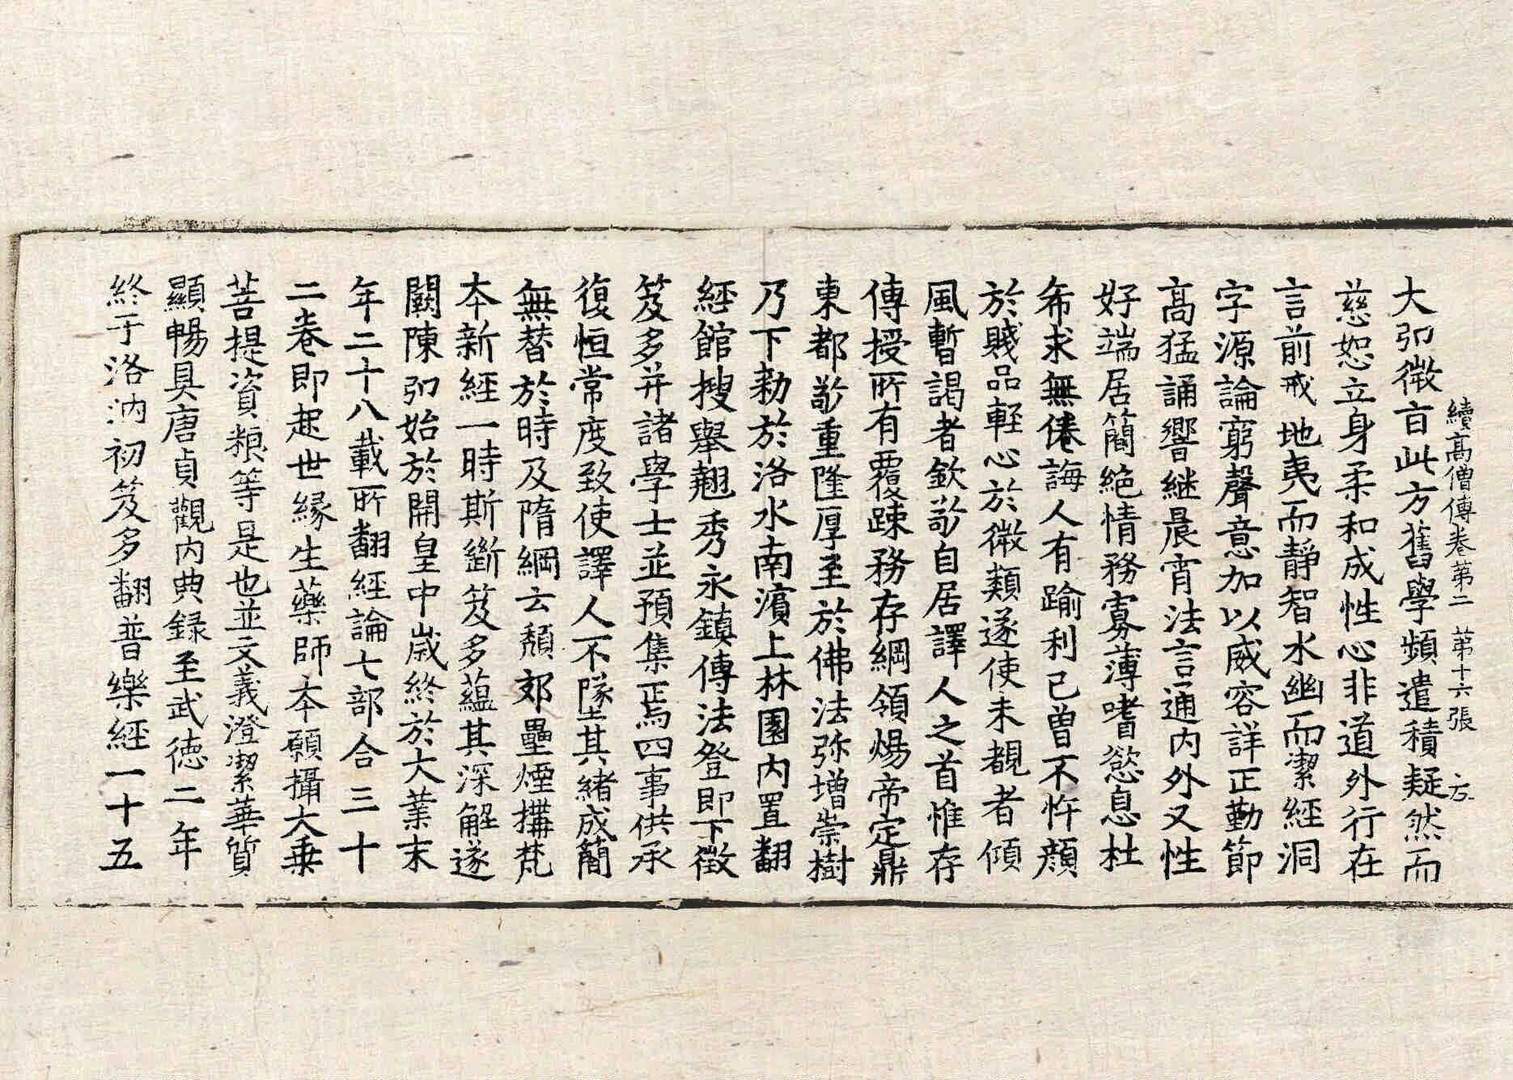 續高僧傳卷第二 第十六張 方
大弘微言此方舊學頻遣積疑然而
慈恕立身柔和成性心非道外行在
言前戒地夷而靜智水幽而潔經洞
字源論窮聲意加以威容詳正勤節
高猛誦響継晨宵法言通內外又性
好端居簡絶情務寡薄嗜慾息杜
希求無倦誨人有踰利己曾不忤顔
於賤品軽心於微類遂使未覩者傾
風暫謁者欽敬自居譯人之首惟存
傳授所有覆踈務存綱領煬帝定鼎
東都敬重隆厚至於佛法弥增崇樹
乃下勑於洛水南濱上林園內置翻
經館捜舉翹秀永鎮傳法登即下徵
笈多并諸學士並預集焉四事供承
復恒常度致使譯人不墜其緒成簡
無替於時及隋綱云頹郊壘煙構梵
夲新經一時斯斷笈多蘊其深解遂
闕陳弘始於開皇中歳終於大業末
年二十八載所翻經論七部合三十
二卷即起世緣生藥師夲願攝大乗
菩提資粮等是也並文義澄潔華質
顯暢具唐貞觀內典録至武德二年
終于洛汭初笈多翻普樂經一十五